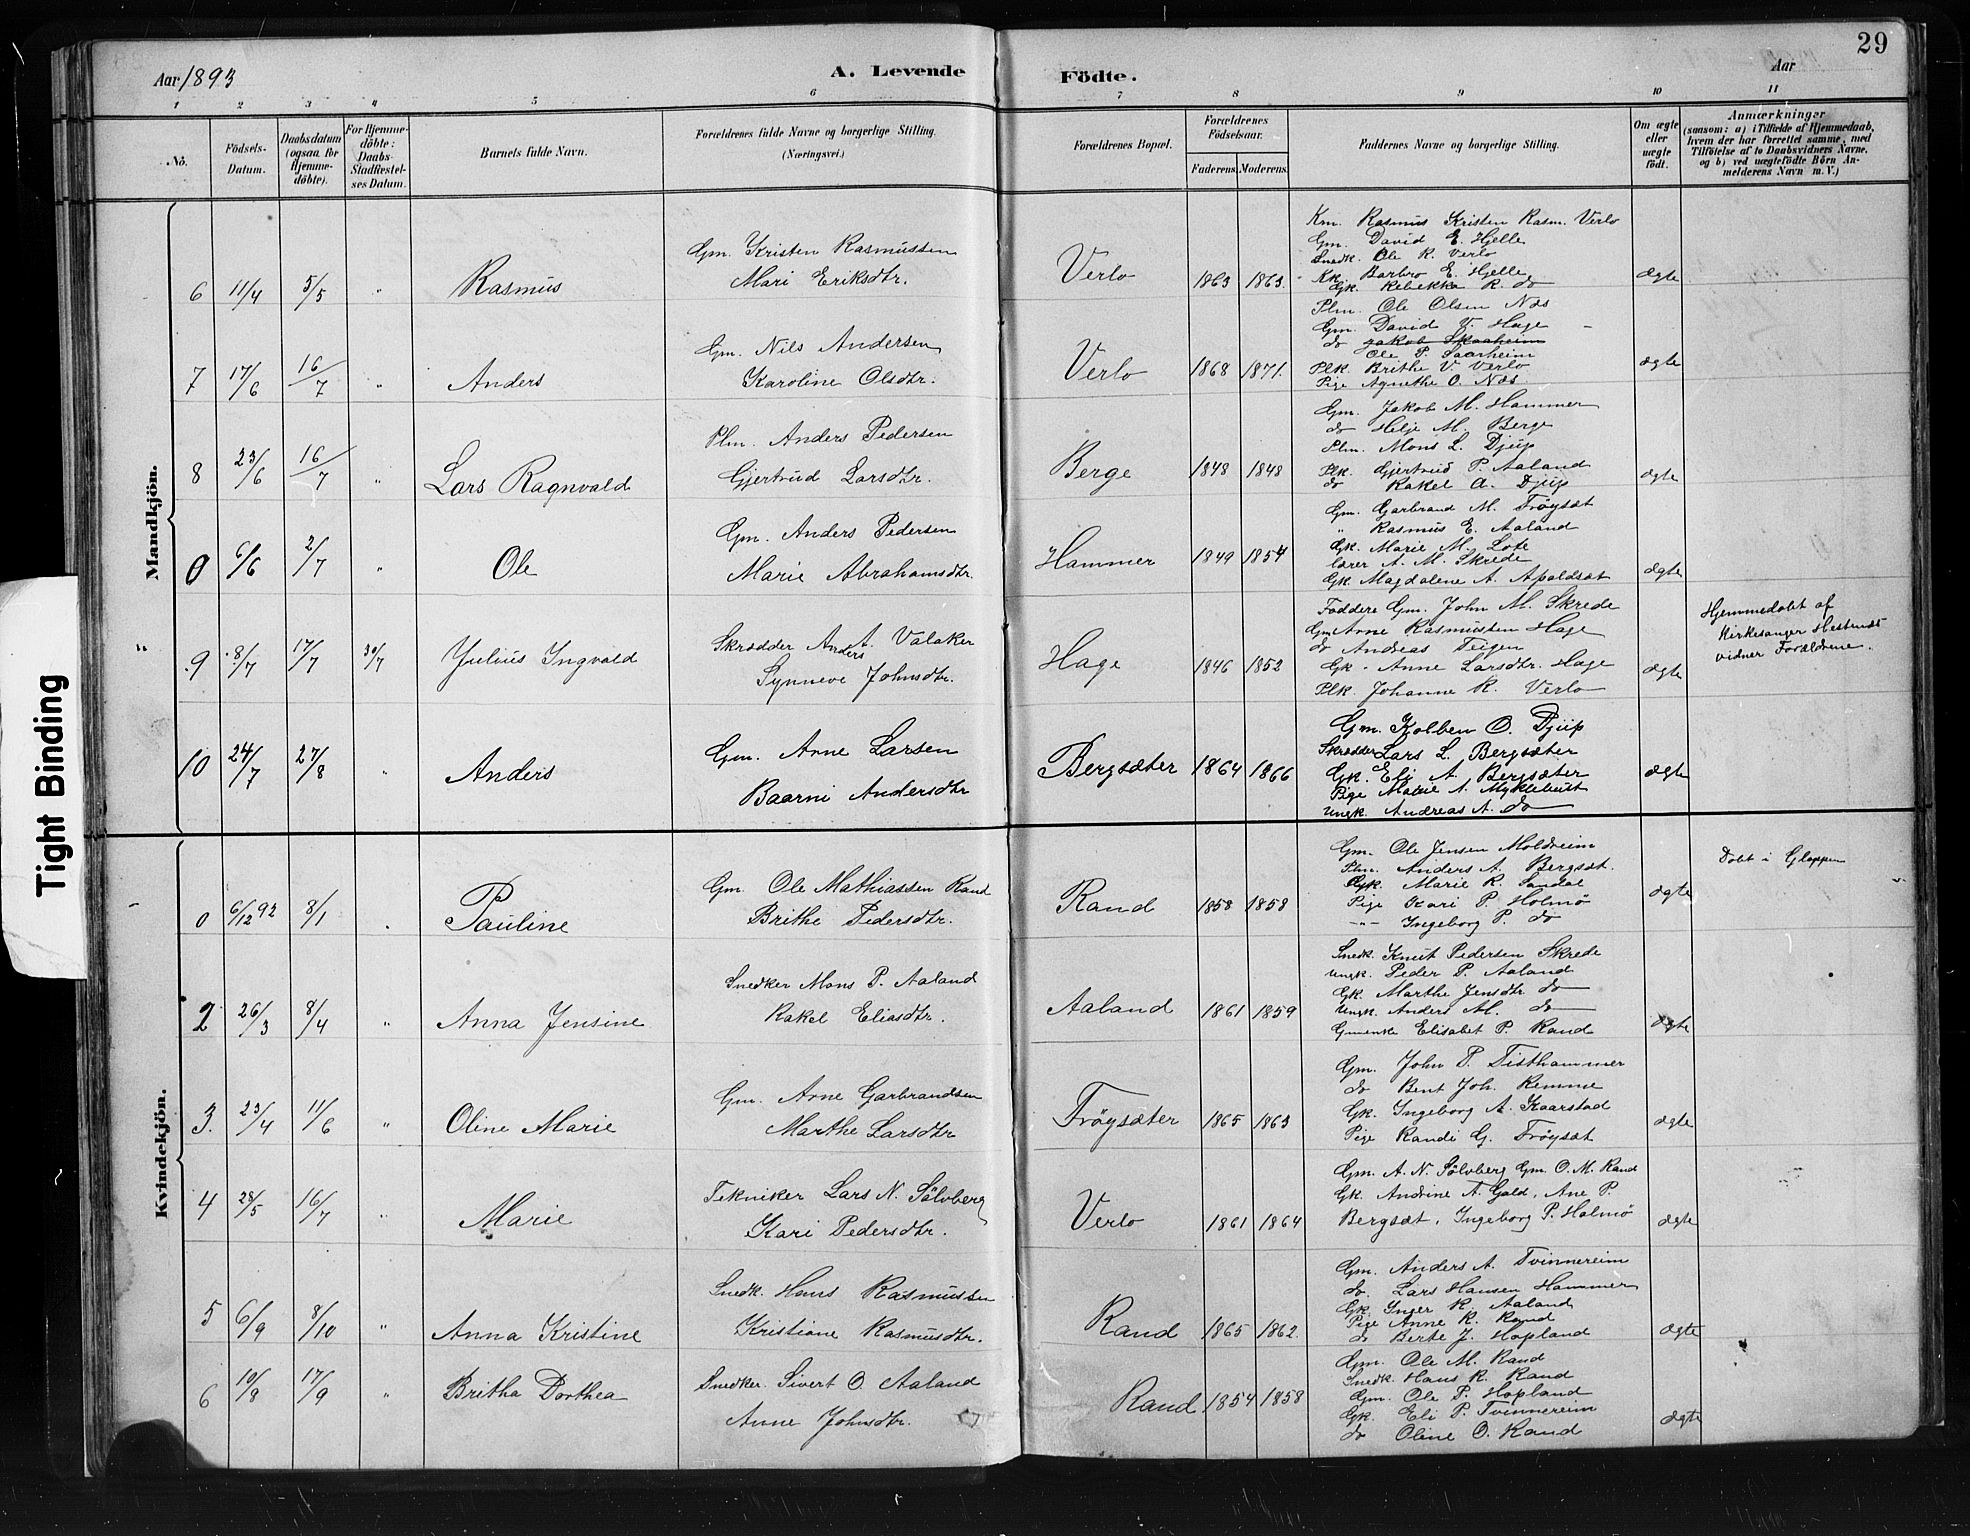 29
Aar 1893
A. Levende
Födte.
Aar
1 2 3 4 5 6 7 8 9 10 11
No.
Födsels-Datum.
Daabsdatum (ogsaa for Hjemme-döbte).
For Hjemme-döbte: Daabs-Stadfæstel-ses Datum.
Barnets fulde Navn.
Forældrenes fulde Navne og borgerlige Stilling. (Næringsvei.)
Forældrenes Bopæl.
Forældrenes Födselsaar.
Faderens. Moderens.
Faddernes Navne og borgerlige Stilling.
Om ægte eller uægte födt.
Anmærkninger (saasom: a) i Tilfælde af Hjemmedaab, hvem der har forrettet samme, med Tilföielse af to Daabsvidners Navne, og b) ved uægtefödte Börn An-melderens Navn m. V.)
Mandkjön.
6 11/4 5/5 " Rasmus
Gm. Kristen Rasmussen
Mari Eriksdtr.
Verlo 1863 1863
Km. Rasmus Kristen Rasm. Verlo
Gm. David E. Hjelle
Snedk. Ole R. Verlo
Kk. Barbro E. Hjelle
Gk. Rebekka R. do
ægte
7 17/6 16/7 " Anders
Gm. Nils Andersen
Karoline Olsdtr.
Verlo 1868 1871.
Plm. Ole Olsen Næs
Gm. David V. Hage
do Jakob Skaaheim
Ole P. Saarheim
Plk. Brithe V. Verlo
Pige Agnethe O. Næs.
ægte
8 23/6 16/7 " Lars Ragnvald
Plm. Anders Pedersen
Gjertrud Larsdtr.
Berge 1848 1848
Gm. Jakob M. Hammer
do Helje M. Berge
Plm. Mons L. Djup
Plk. Gjertrud P. Aaland
do Rakel A. Djup
ægte
0 6/6 2/7 " Ole
Gm. Anders Pedersen
Marie Abrahamsdtr.
Hammer 1849 1854
Gm. Garbrand M. Frøysæt
" Rasmus E. Aaland
Gk. Marie M. Lote
lærer A. M. Skrede
Gk. Magdalene A. Apaldsæt
ægte
9 8/7 17/7 30/7 Julius Ingvald
Skrædder Anders A. Valaker
Synneve Johnsdtr.
Hage 1846 1852
Faddere Gm. John M. Skrede
Gm Arne Rasmussen Hage
do Andreas Teigen
Gk. Anne Larsdtr. Hage
Plk Johanne R. Verlo
ægte
Hjemmedøbt af
Kirkesanger
vidner Forældrene.
10 24/7 27/8 " Anders
Gm. Arne Larsen
Baarni Andersdtr
Bergsæter 1864 1866
Gm. Kolben O. Djup
Skrædder Lars L. Bergsæter
Gk. Eli A. Bergsæter
Pige Marie A. Myklebust
Ungk. Andreas A. do
ægte
Kvindekjön.
0 6/12 92 8/1 Pauline
Gm. Ole Mathiassen Rand
Brithe Pedersdtr.
Rand 1858 1858
Gm. Ole Jensen Moldreim
Plm. Anders A. Bergsæt.
Gk. Marie R. Sandal
Pige Kari P. Holmø
-"- Ingeborg P. do
ægte
Døbt i Gloppen
2 26/3 8/4 " Anna Jensine
Snedker Mons P. Aaland
Rakel Eliasdtr.
Aaland 1861 1859
Snedk. Knut Pedersen Skrede
Ungk. Peder P. Aaland
Gk. Marthe Jensdtr do
Ungk. Anders M. do
Gmenke Elisabet P. Rand
ægte
3. 23/4 11/6 " Oline Marie
Gm. Arne Garbrandsen
Marthe Larsdtr
Frøysæter 1865 1863
Gm. John P. Tisthammer
do Bent Joh. Remme
Gk. Ingeborg A. Kaarstad
Pige Randi G. Frøysæt
ægte
4 28/5 16/7 " Marie
Tekniker Lars N. Sölvberg
Kari Pedersdtr.
Verlo 1861 1864
Gm. A. N. Sölvberg Gm. O. M. Rand
Gk. Andrine A. Gald, Ane P.
Bergsæt, Ingeborg P. Holmø
ægte
5 6/9 8/10 " Anna Kristine
Snedk. Hans Rasmussen
Kristiane Rasmusdtr.
Rand 1865 1862.
Gm. Anders A. Tvinnereim
do. Lars Hansen Hammer
Gk. Inger R. Aaland
Pige Anne R. Rand
do Berte J. Hopland
ægte
6 10/8 17/9 " Britha Dorthea
Snedker. Sivert O. Aaland
Anne Johnsdtr.
Rand 1854 1858
Gm. Ole M. Rand
Snedk. Hans R. Rand
Gm. Ole P. Hopland
Gk. Eli P. Tvinnereim
do Oline O. Rand
ægte
Tight Binding